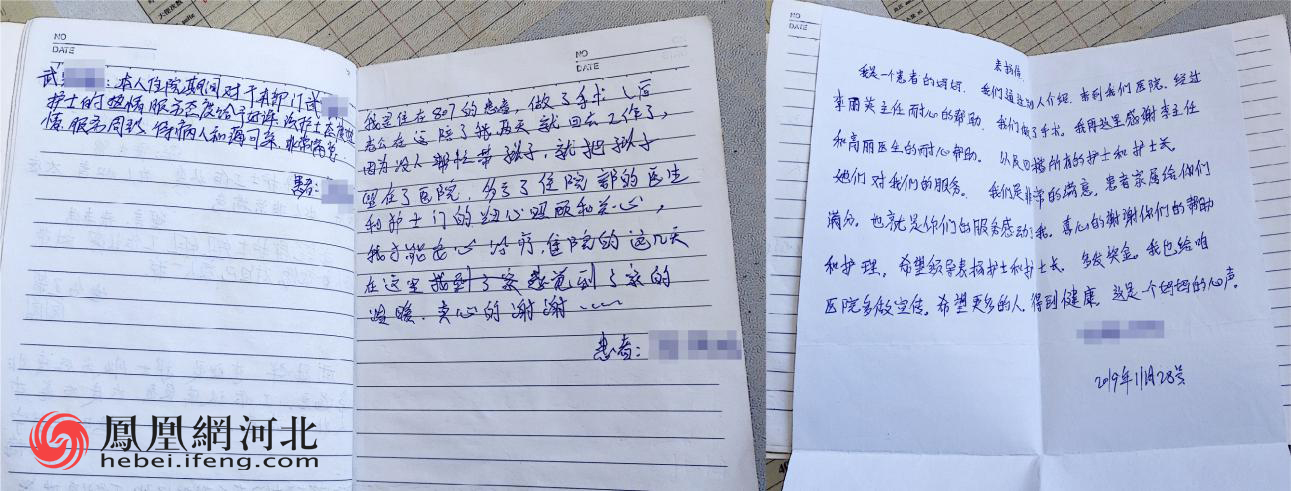 NO
DATE
武 :本人住院期间对于本部门诊
护士的热情服务态度给予好评,该护士态度
情.服务周到,待病人和蔼可亲.非常满意.
患者:
NO
DATE
我是住在307的患者,做了手术以后
老公在这陪了我两天就回去工作了,
因为没人帮忙带孩子,就把孩子
留在了医院,多亏了住院部的医生
和护士门的细心照顾和关心,
我才能安心治疗,住院的这几天
在这里找到了家感觉到了家的
温暖.真心的谢谢……
患者:
鳳凰網河北
hebei.ifeng.com
NO
DATE
表扬信
我是一个患者的妈妈.我们通过别人介绍.来到我们医院.经过
李丽英主任耐心的帮助.我们做了手术.我再这里感谢李主任
和高丽医生的耐心帮助.以及四楼所有的护士和护士长.
她们对我们的服务.我们是非常的满意.患者家属给你们
满分.也就是你们的服务感动了我.真心的谢谢你们的帮助
和护理.希望领导表扬护士和护士长.多发奖金.我也给咱
医院多做宣传.希望更多的人.得到健康.这是一个妈妈的心声.
2019年11月28号